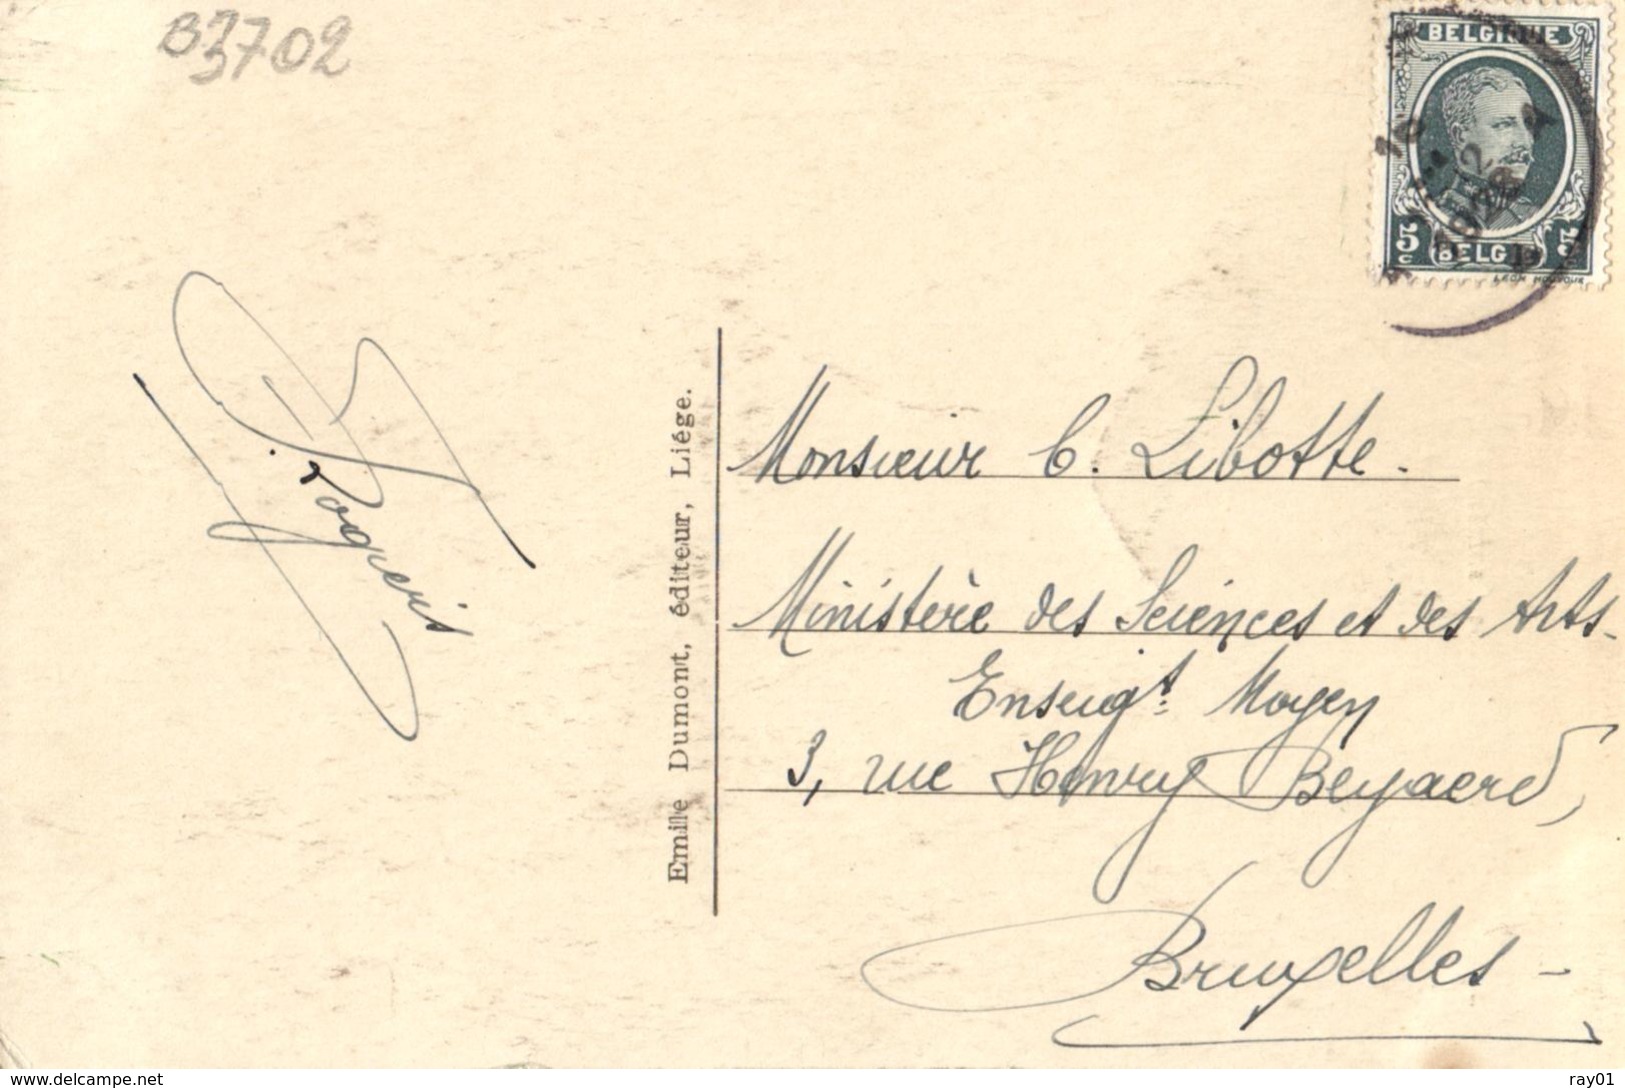 B3702
BELGIQUE
5 c
BELG
5
Emile Dumont, éditeur, Liége.
Monsieur C. Libotte.
Ministère des Sciences et des Arts.
Enseigt. Moyen
3, rue Henry Beyaerd,
Bruxelles -
https://www.delcampe.net
ray01